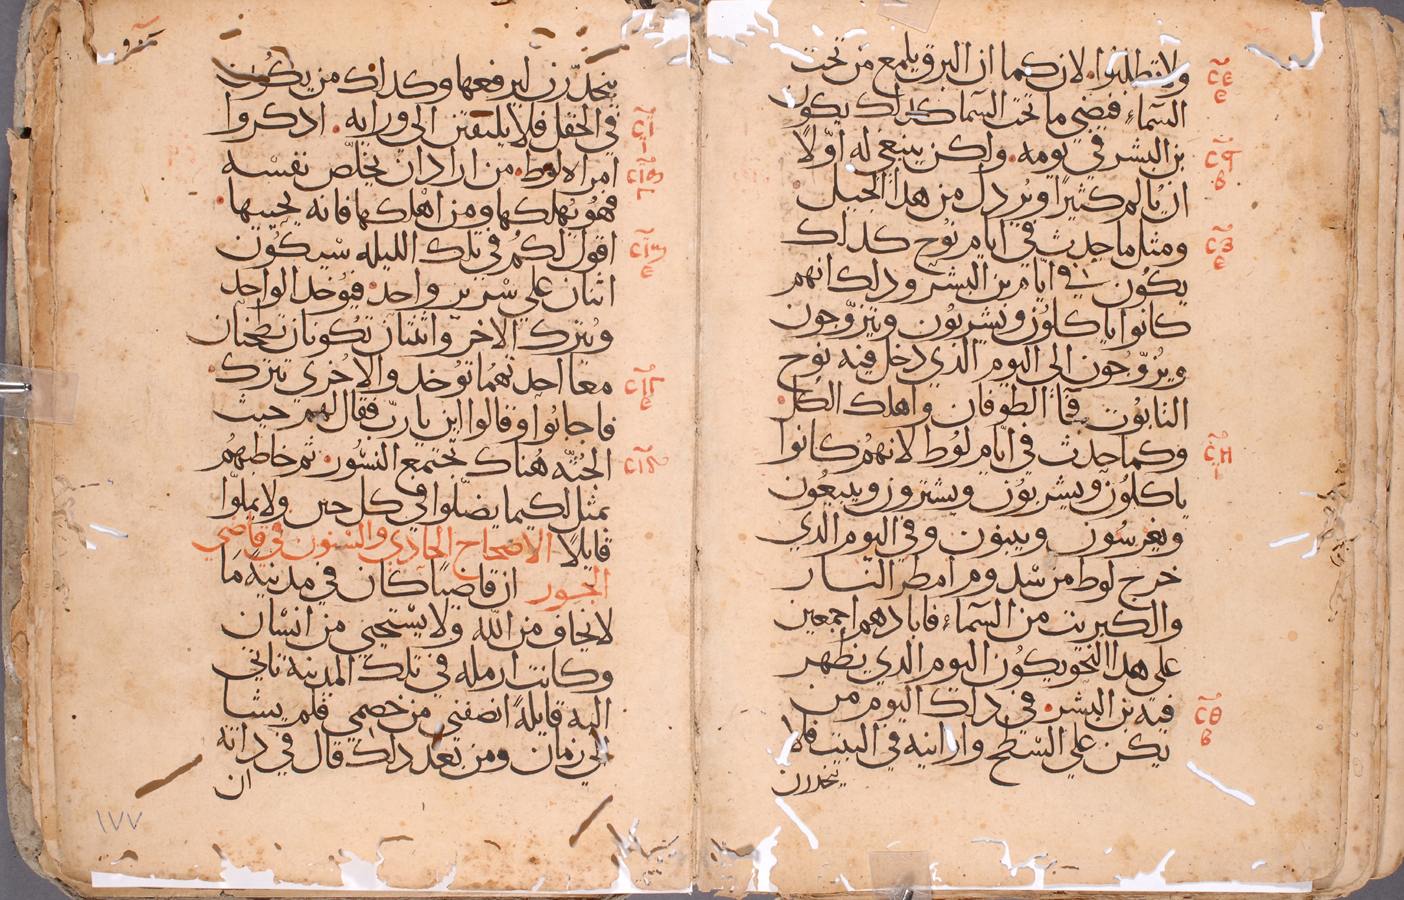 ولا تطلبوا. لان كما ان البرق يلمع من تحت
السماء فيضي ما تحت السما كداك يكون
بن البشر في يومه. ولكن ينبغي له اولًا
ان يالم كثيرًا ويردل من هدا الجيل
ومثل ما حدث في ايام نوح كداك
يكون في ايام بن البشر ودلك انهم
كانوا ياكلون ويشربون ويتزوجون
ويزوجون الى اليوم الدي دخل فيه نوح
التابوت فجا الطوفان واهلك الكل.
وكما حدث في ايام لوط لانهم كانوا
ياكلون ويشربون ويشترون ويبيعون
ويغرسون ويبنون وفي اليوم الدي
خرج لوط من سدوم امطر النار
والكبريت من السماء فابادهم اجمعين
على هدا النحو يكون اليوم الدي يظهر
فيه بن البشر. في داك اليوم من
يكن علي السطح واوانيه في البيت فلا
يحدرن
ينحدرن ليرفعها وكداك من يكون
في الحقل فلا يلتفتن الى ورايه. ادكروا
امراه لوط. من اراد ان يخلص نفسه
فهو يهلكها ومن اهلكها فانه يحييها.
اقول لكم في تلك الليله سيكون
اثنان علي سرير واحد. فيوخد الواحد
ويترك الاخر واثنتان تكونان تطحنان
معا احديهما توخد والاخرى تترك.
فاجابوا وقالوا اين يا رب فقال لهم حيث
الجثه هناك تجتمع النسور. ثم خاطبهم
بمثل لكيما يصلوا في كل حين ولا يملوا
قايلًا الاصحاح الحادي والستون في قاضي
الجور ان قاضيًا كان في مدينه ما
لا يخاف من الله ولا يستحي من انسان
وكانت ارمله في تلك المدينه تاتي
اليه قايلةً انصفني من خصمي فلم يشا
الي زمان ومن بعد دلك قال في داته
ان
١٧٧